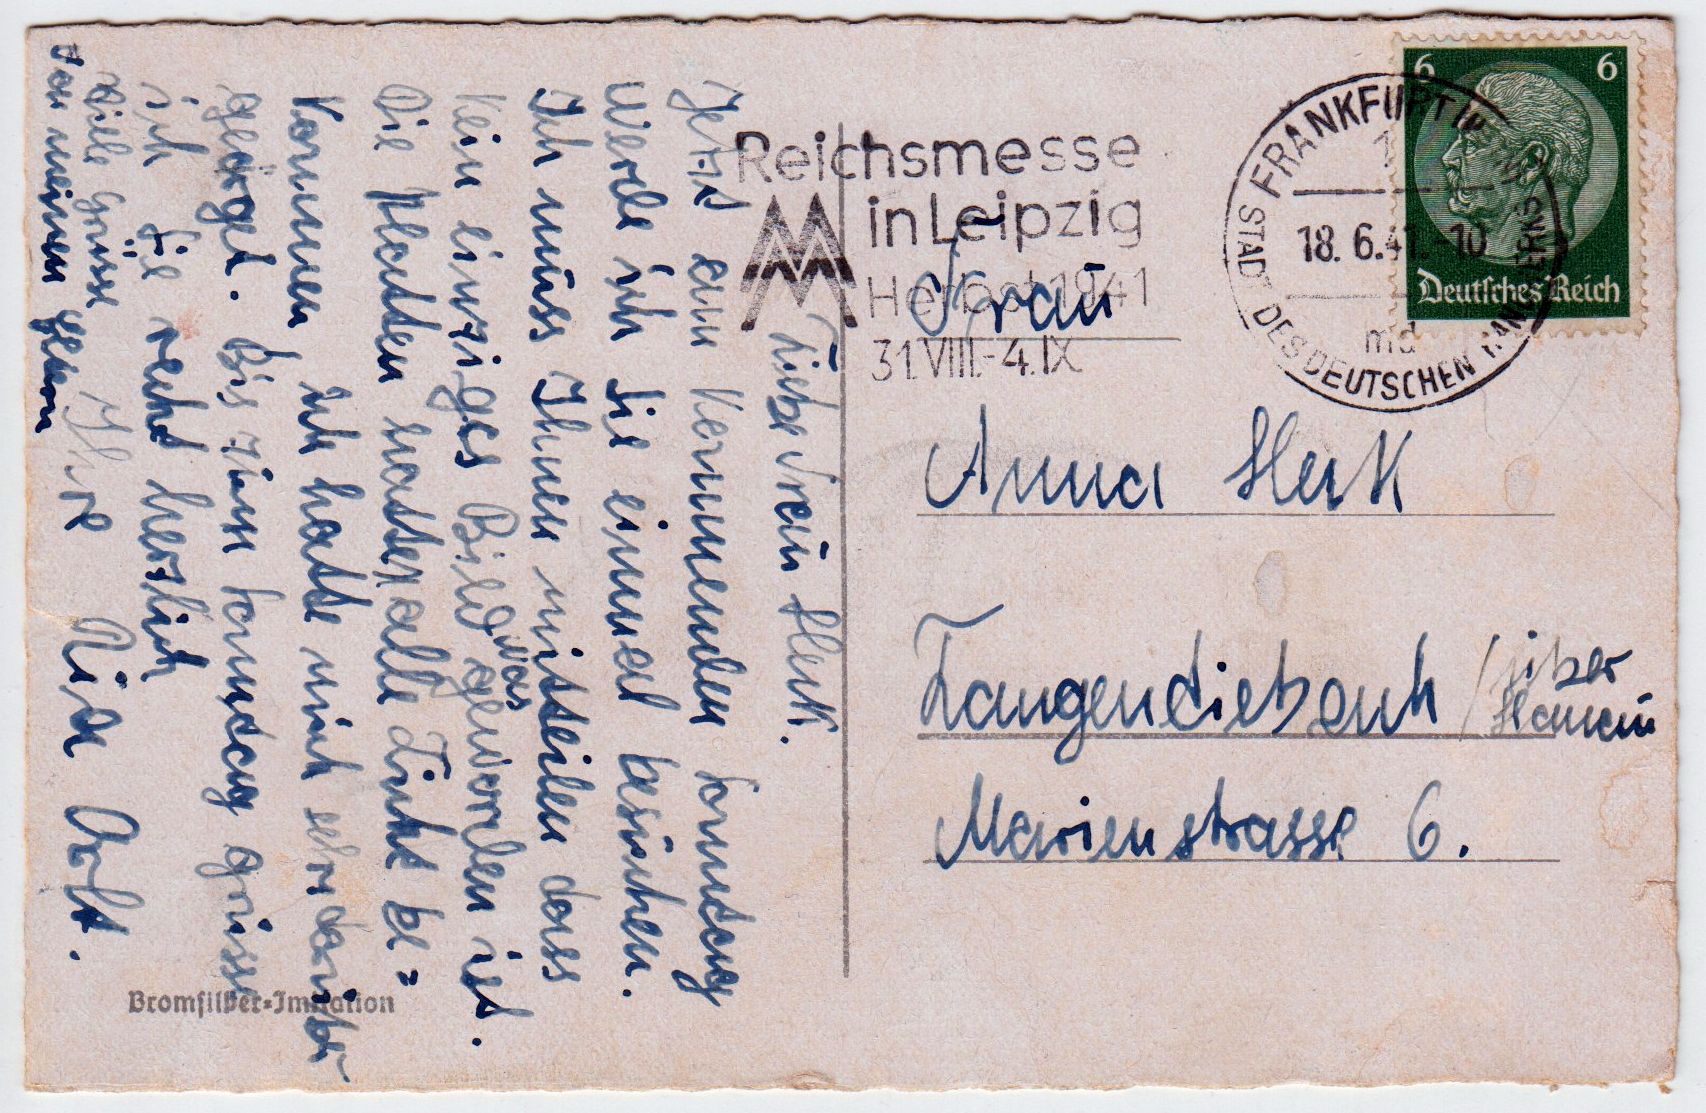 Liebe Frau Heck.
Jetzt am kommenden Sonntag
werde ich Sie einmal besuchen.
Ich muss Ihnen mitteilen dass
kein einziges Bild was geworden ist.
Die Platten hatten alle Licht be=
kommen ich hatte mich sehr darüber
geärgert. Bis zum Sonntag grüsse
ich Sie recht herzlich
Ihre Rich Arlt.
viele Grüsse
von meinen Eltern
Bromsilber=Imitation
Reichsmesse
in Leipzig
Herbst 1941
31.VIII.-4.IX
FRANKFURT
18.6.41.-10
md
STADT DES DEUTSCHEN HANDWERKS
6 6
Deutsches Reich
Frau
Anna Heck
Langendiebach / über
Hanau
Marienstrasse 6.